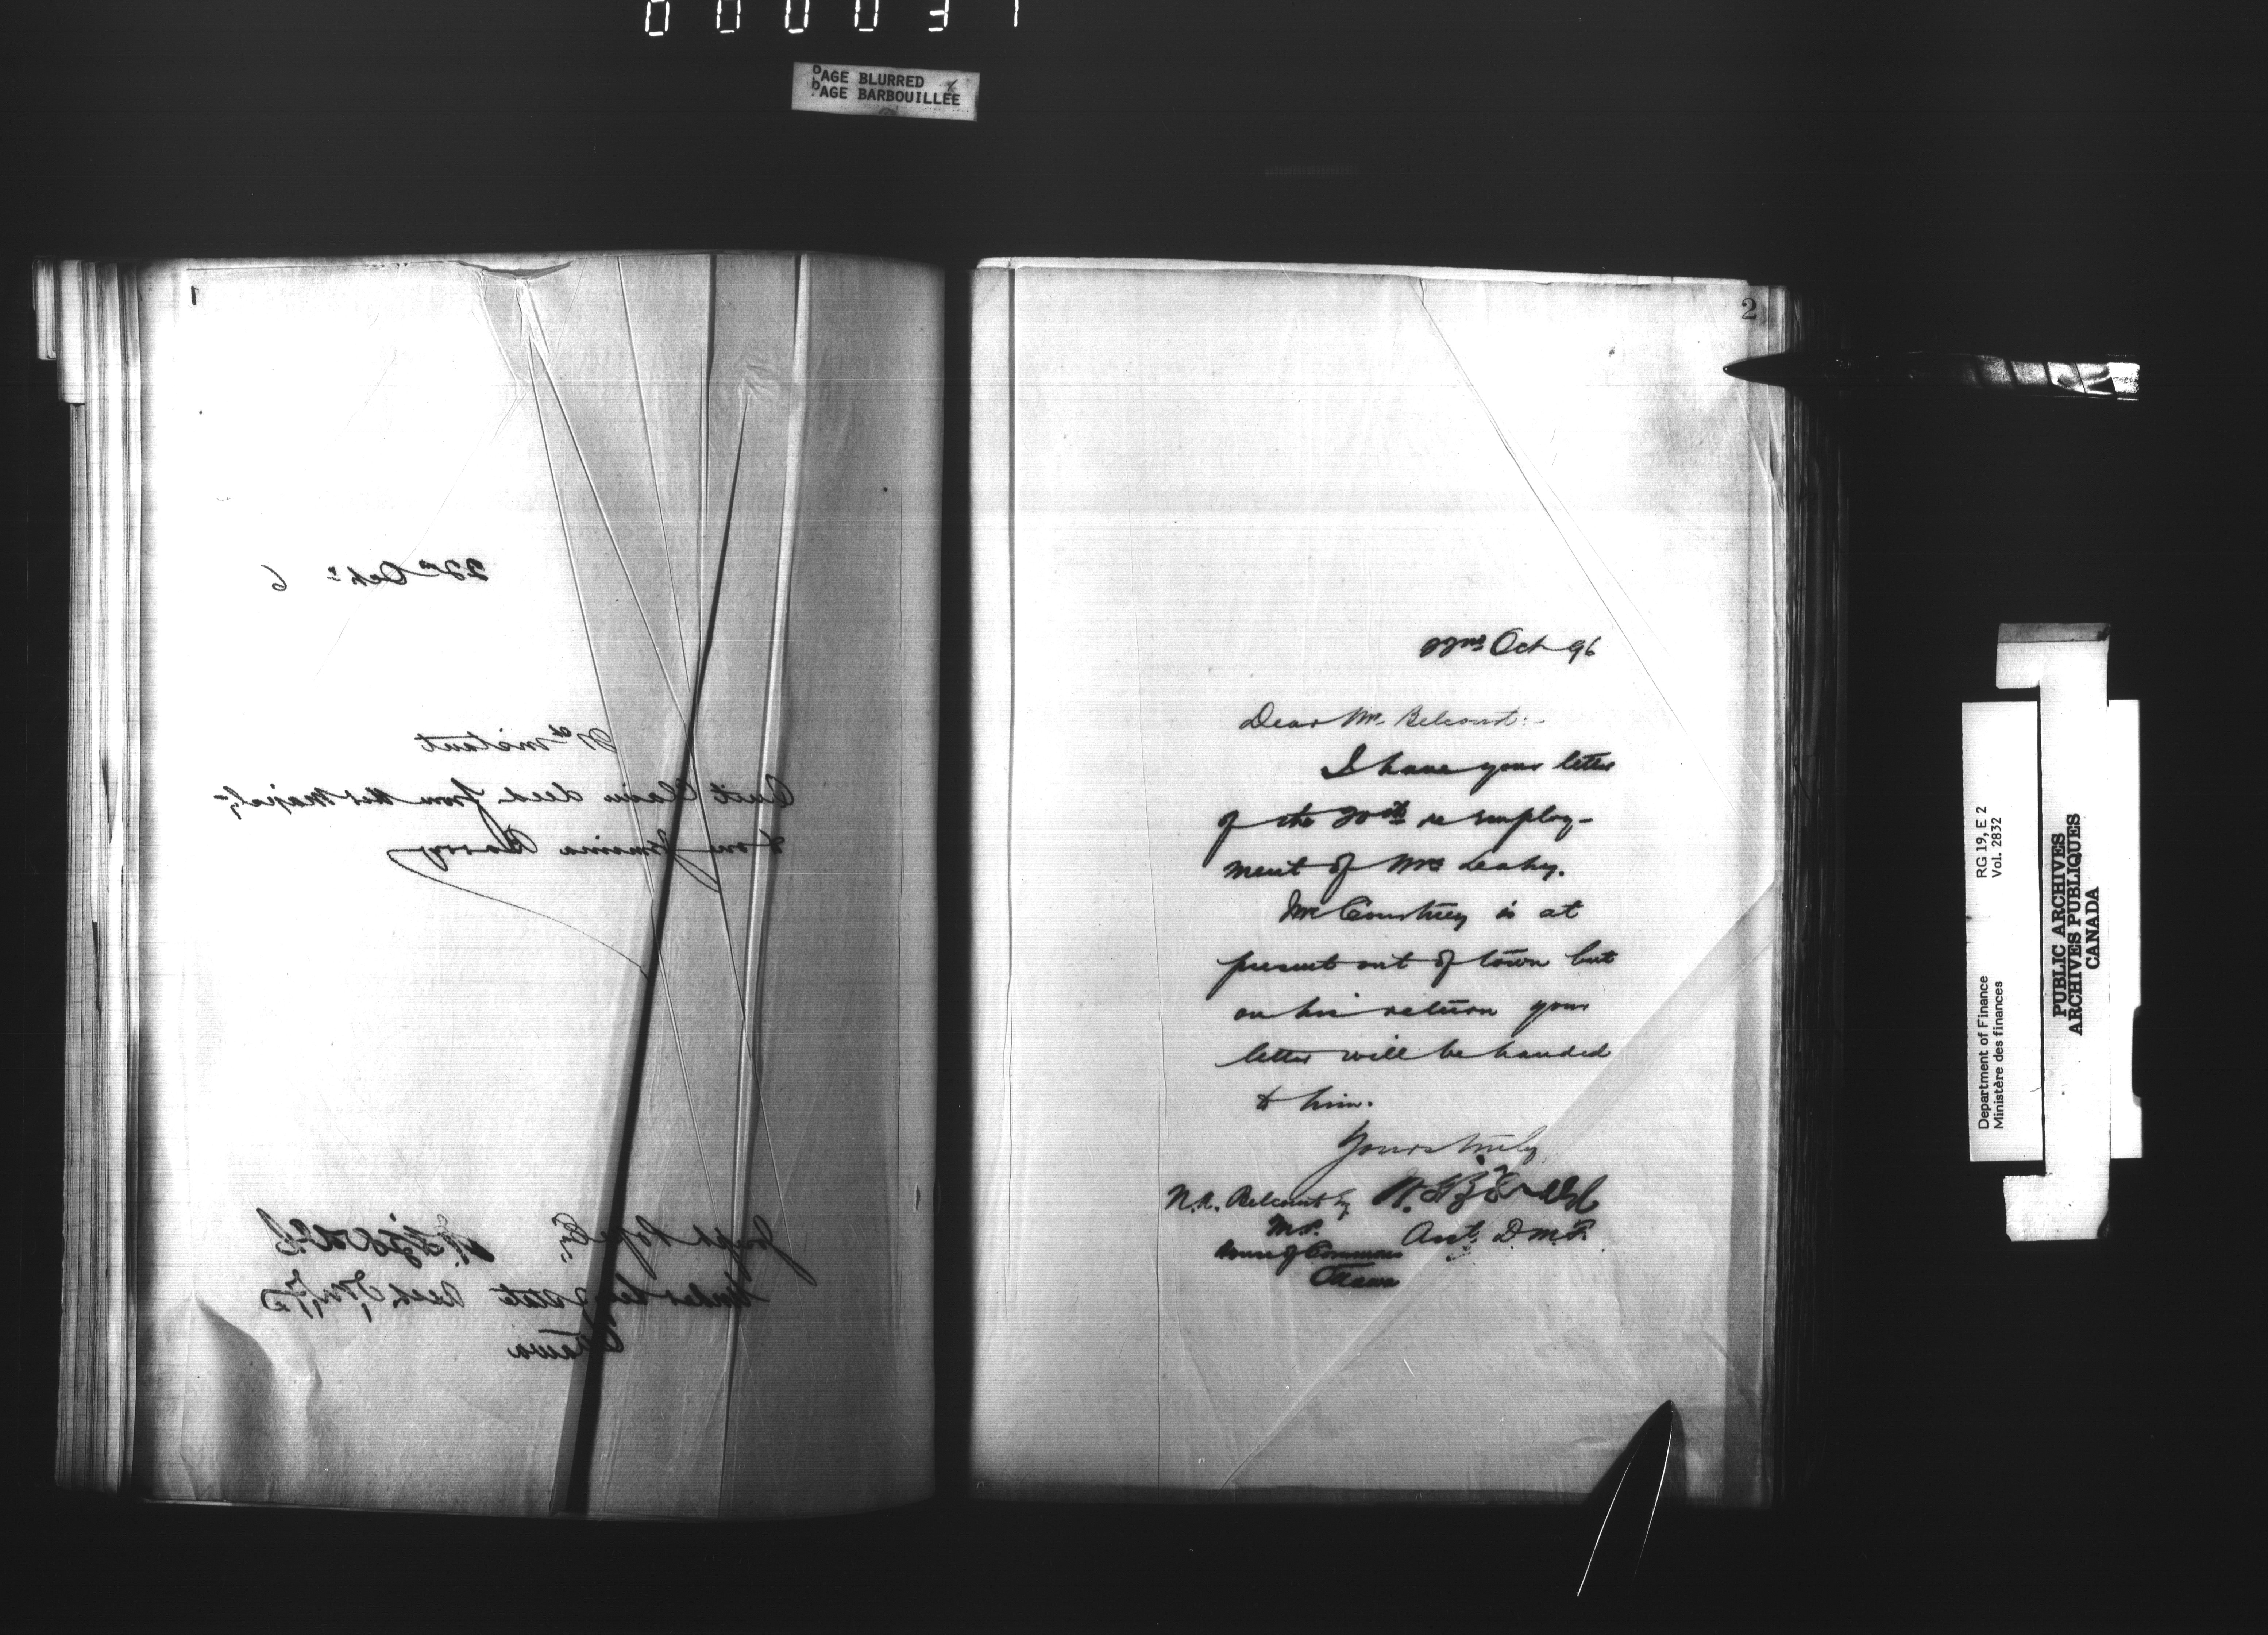 PAGE BLURRED
PAGE BARBOUILLEE
22nd Oct 6
Quit Claim deed from Her Majesty
Joseph Pope Esq.
Under Sec of State
Ottawa
2
22nd Oct 96
Dear Mr. Belcourt:-
I have your letter
of the 20th re employ-
ment of Mrs Leahy.
Mr Courtney is at
present out of town but
on his return your
letter will be handed
to him.
Yours truly
N.A. Belcourt Esq
M.P.
House of Commons
Asst. D.M.F.
Ottawa
Department of Finance
Ministère des finances
RG 19, E 2
Vol. 2832
PUBLIC ARCHIVES
ARCHIVES PUBLIQUES
CANADA